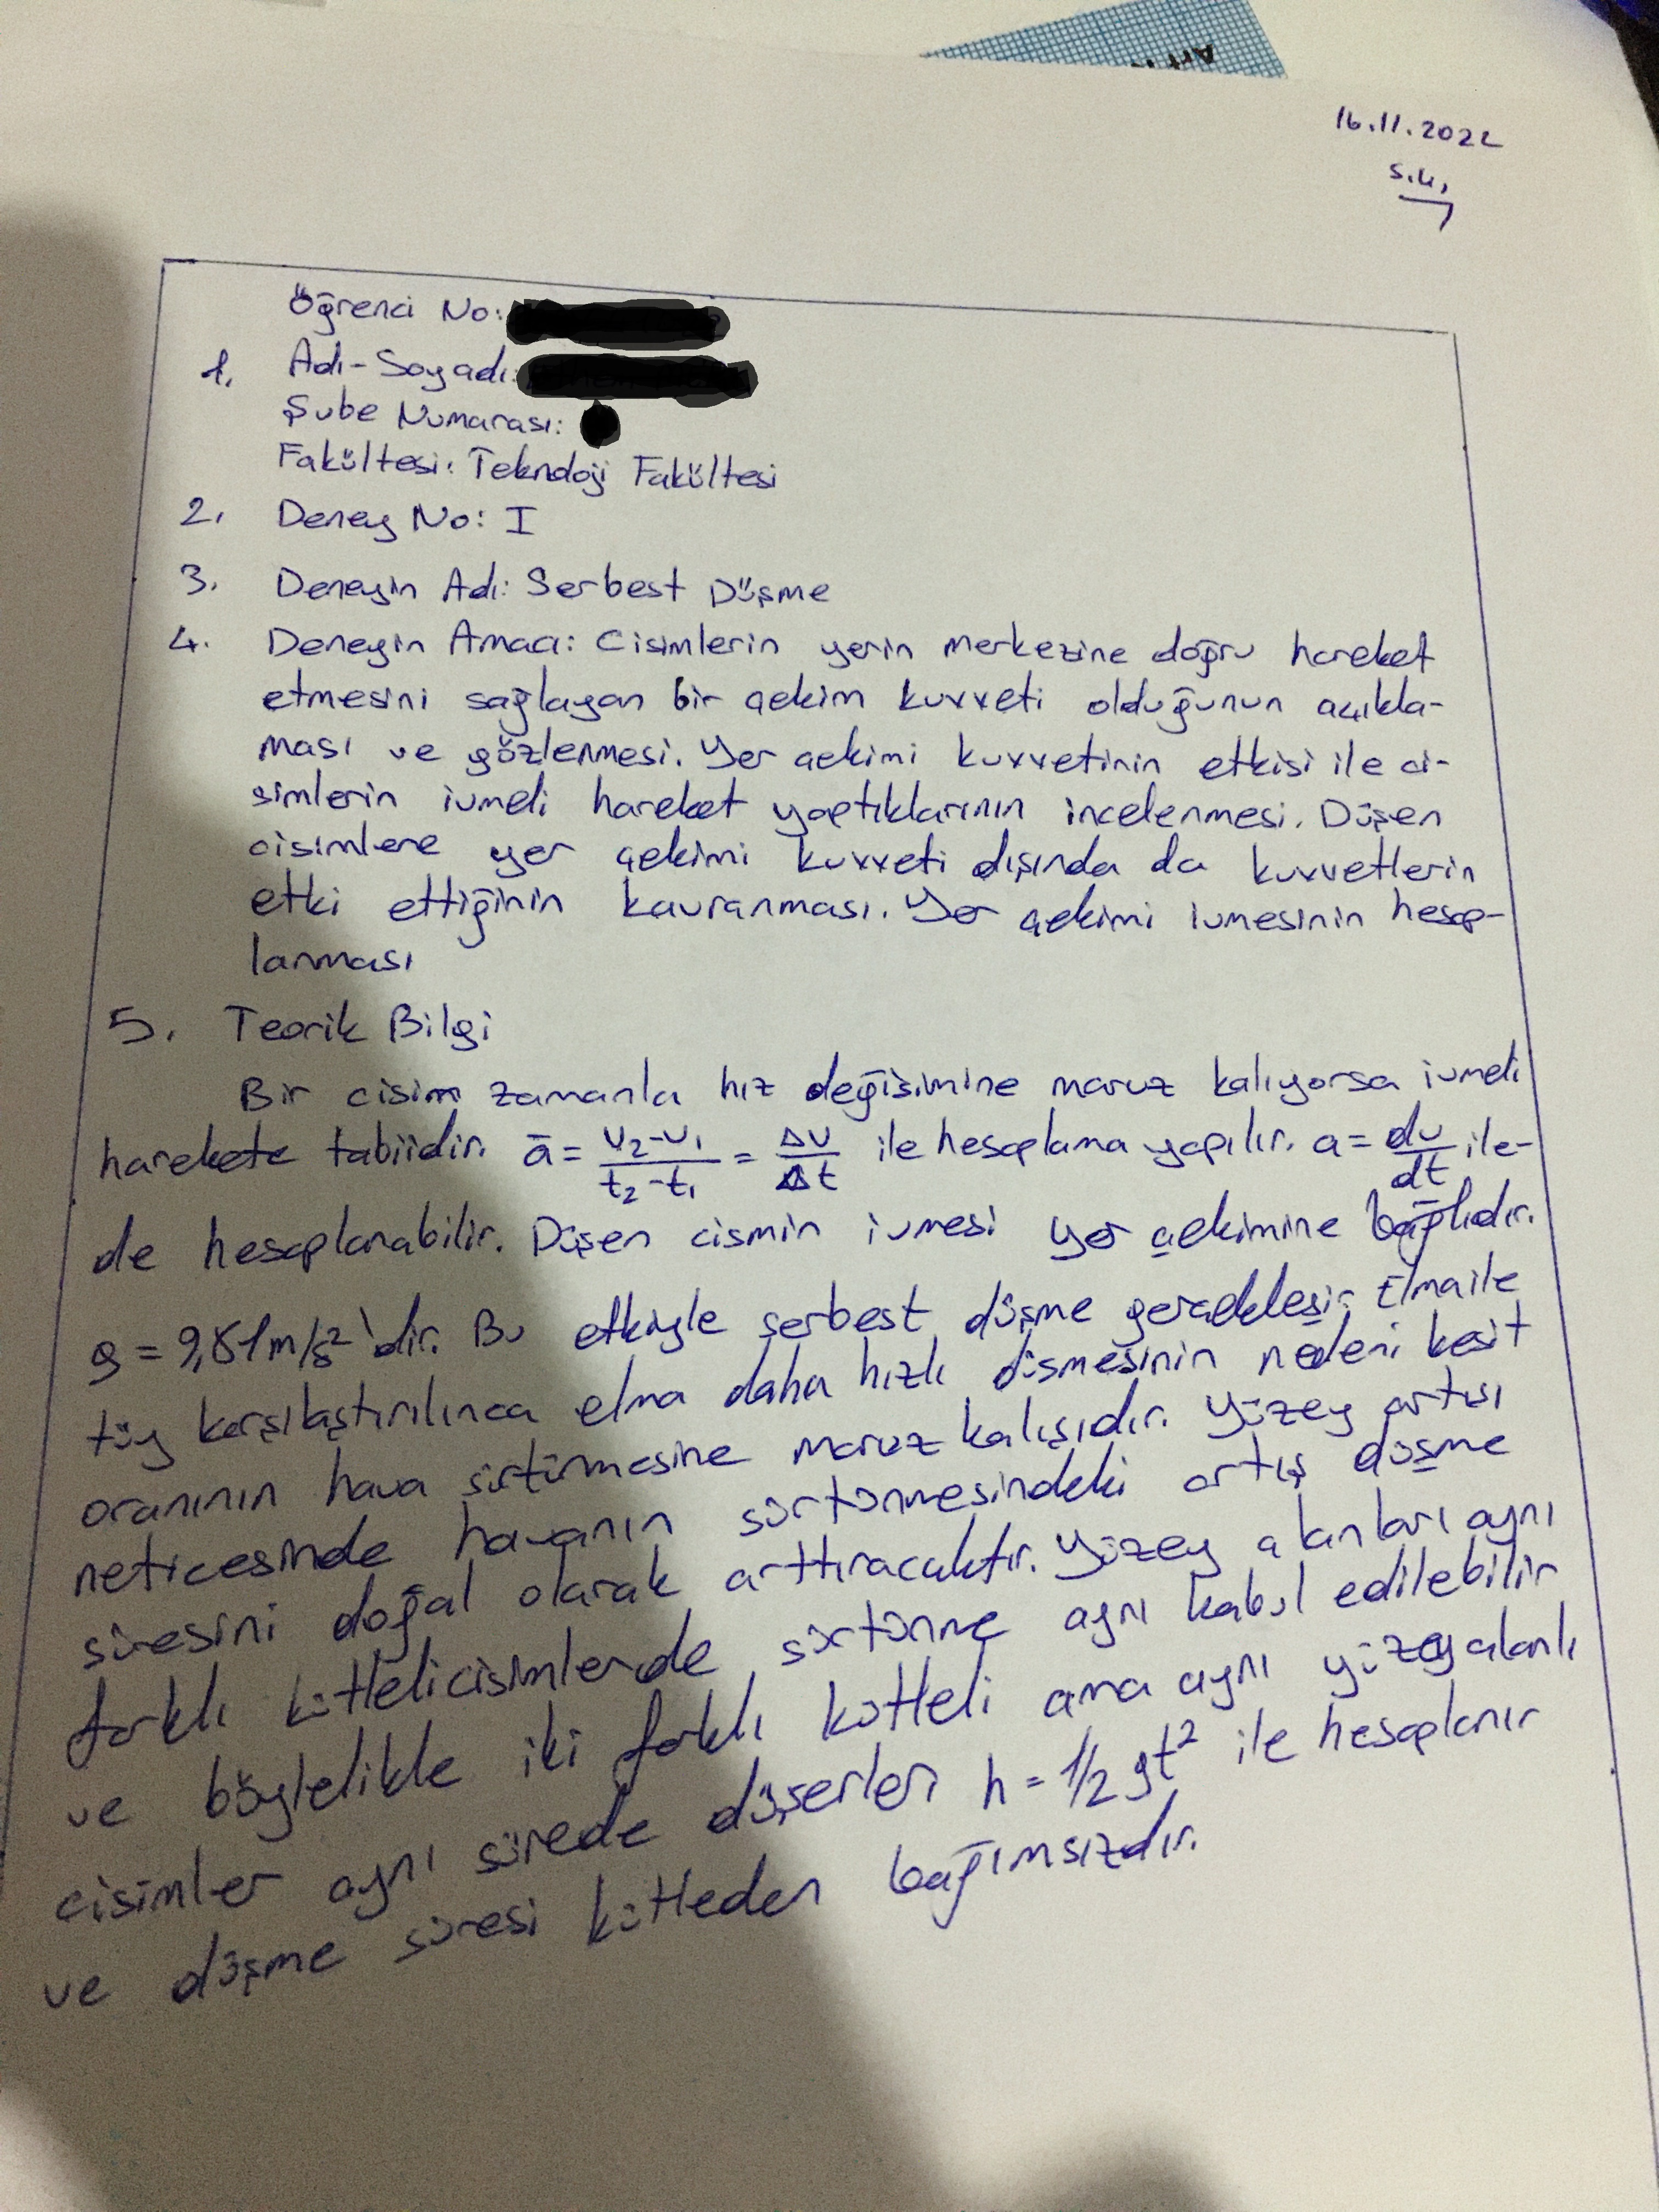 16.11.2022
Öğrenci No:
1. Adı-Soyadı:
Şube Numarası:
Fakültesi: Teknoloji Fakültesi
2. Deney No: I
3. Deneyin Adı: Serbest Düşme
4. Deneyin Amacı: Cisimlerin yerin merkezine doğru hareket
etmesini sağlayan bir çekim kuvveti olduğunun açıkla-
ması ve gözlenmesi. Yer çekimi kuvvetinin etkisi ile ci-
simlerin ivmeli hareket yaptıklarının incelenmesi. Düşen
cisimlere yer çekimi kuvveti dışında da kuvvetlerin
etki ettiğinin kavranması. Yer çekimi ivmesinin hesap-
lanması
5. Teorik Bilgi
Bir cisim zamanla hız değişimine maruz kalıyorsa ivmeli
harekete tabiidir. ā = v₂-v₁/t₂-t₁ = Δv/Δt ile hesaplama yapılır. a = dv/dt ile-
de hesaplanabilir. Düşen cismin ivmesi yer çekimine bağlıdır.
g = 9,81m/s² 'dir. Bu etkiyle serbest düşme gerçekleşir. Elma ile
tüy karşılaştırılınca elma daha hızlı düşmesinin nedeni kesit
oranının hava sürtünmesine maruz kalışıdır. Yüzey artışı
neticesinde havanın sürtünmesindeki artış düşme
süresini doğal olarak arttıracaktır. Yüzey alanları aynı
farklı kütleli cisimlerde sürtünme aynı kabul edilebilir
ve böylelikle iki farklı kütleli ama aynı yüzey alanlı
cisimler aynı sürede düşerler h = 1/2 gt² ile hesaplanır
ve düşme süresi kütleden bağımsızdır.